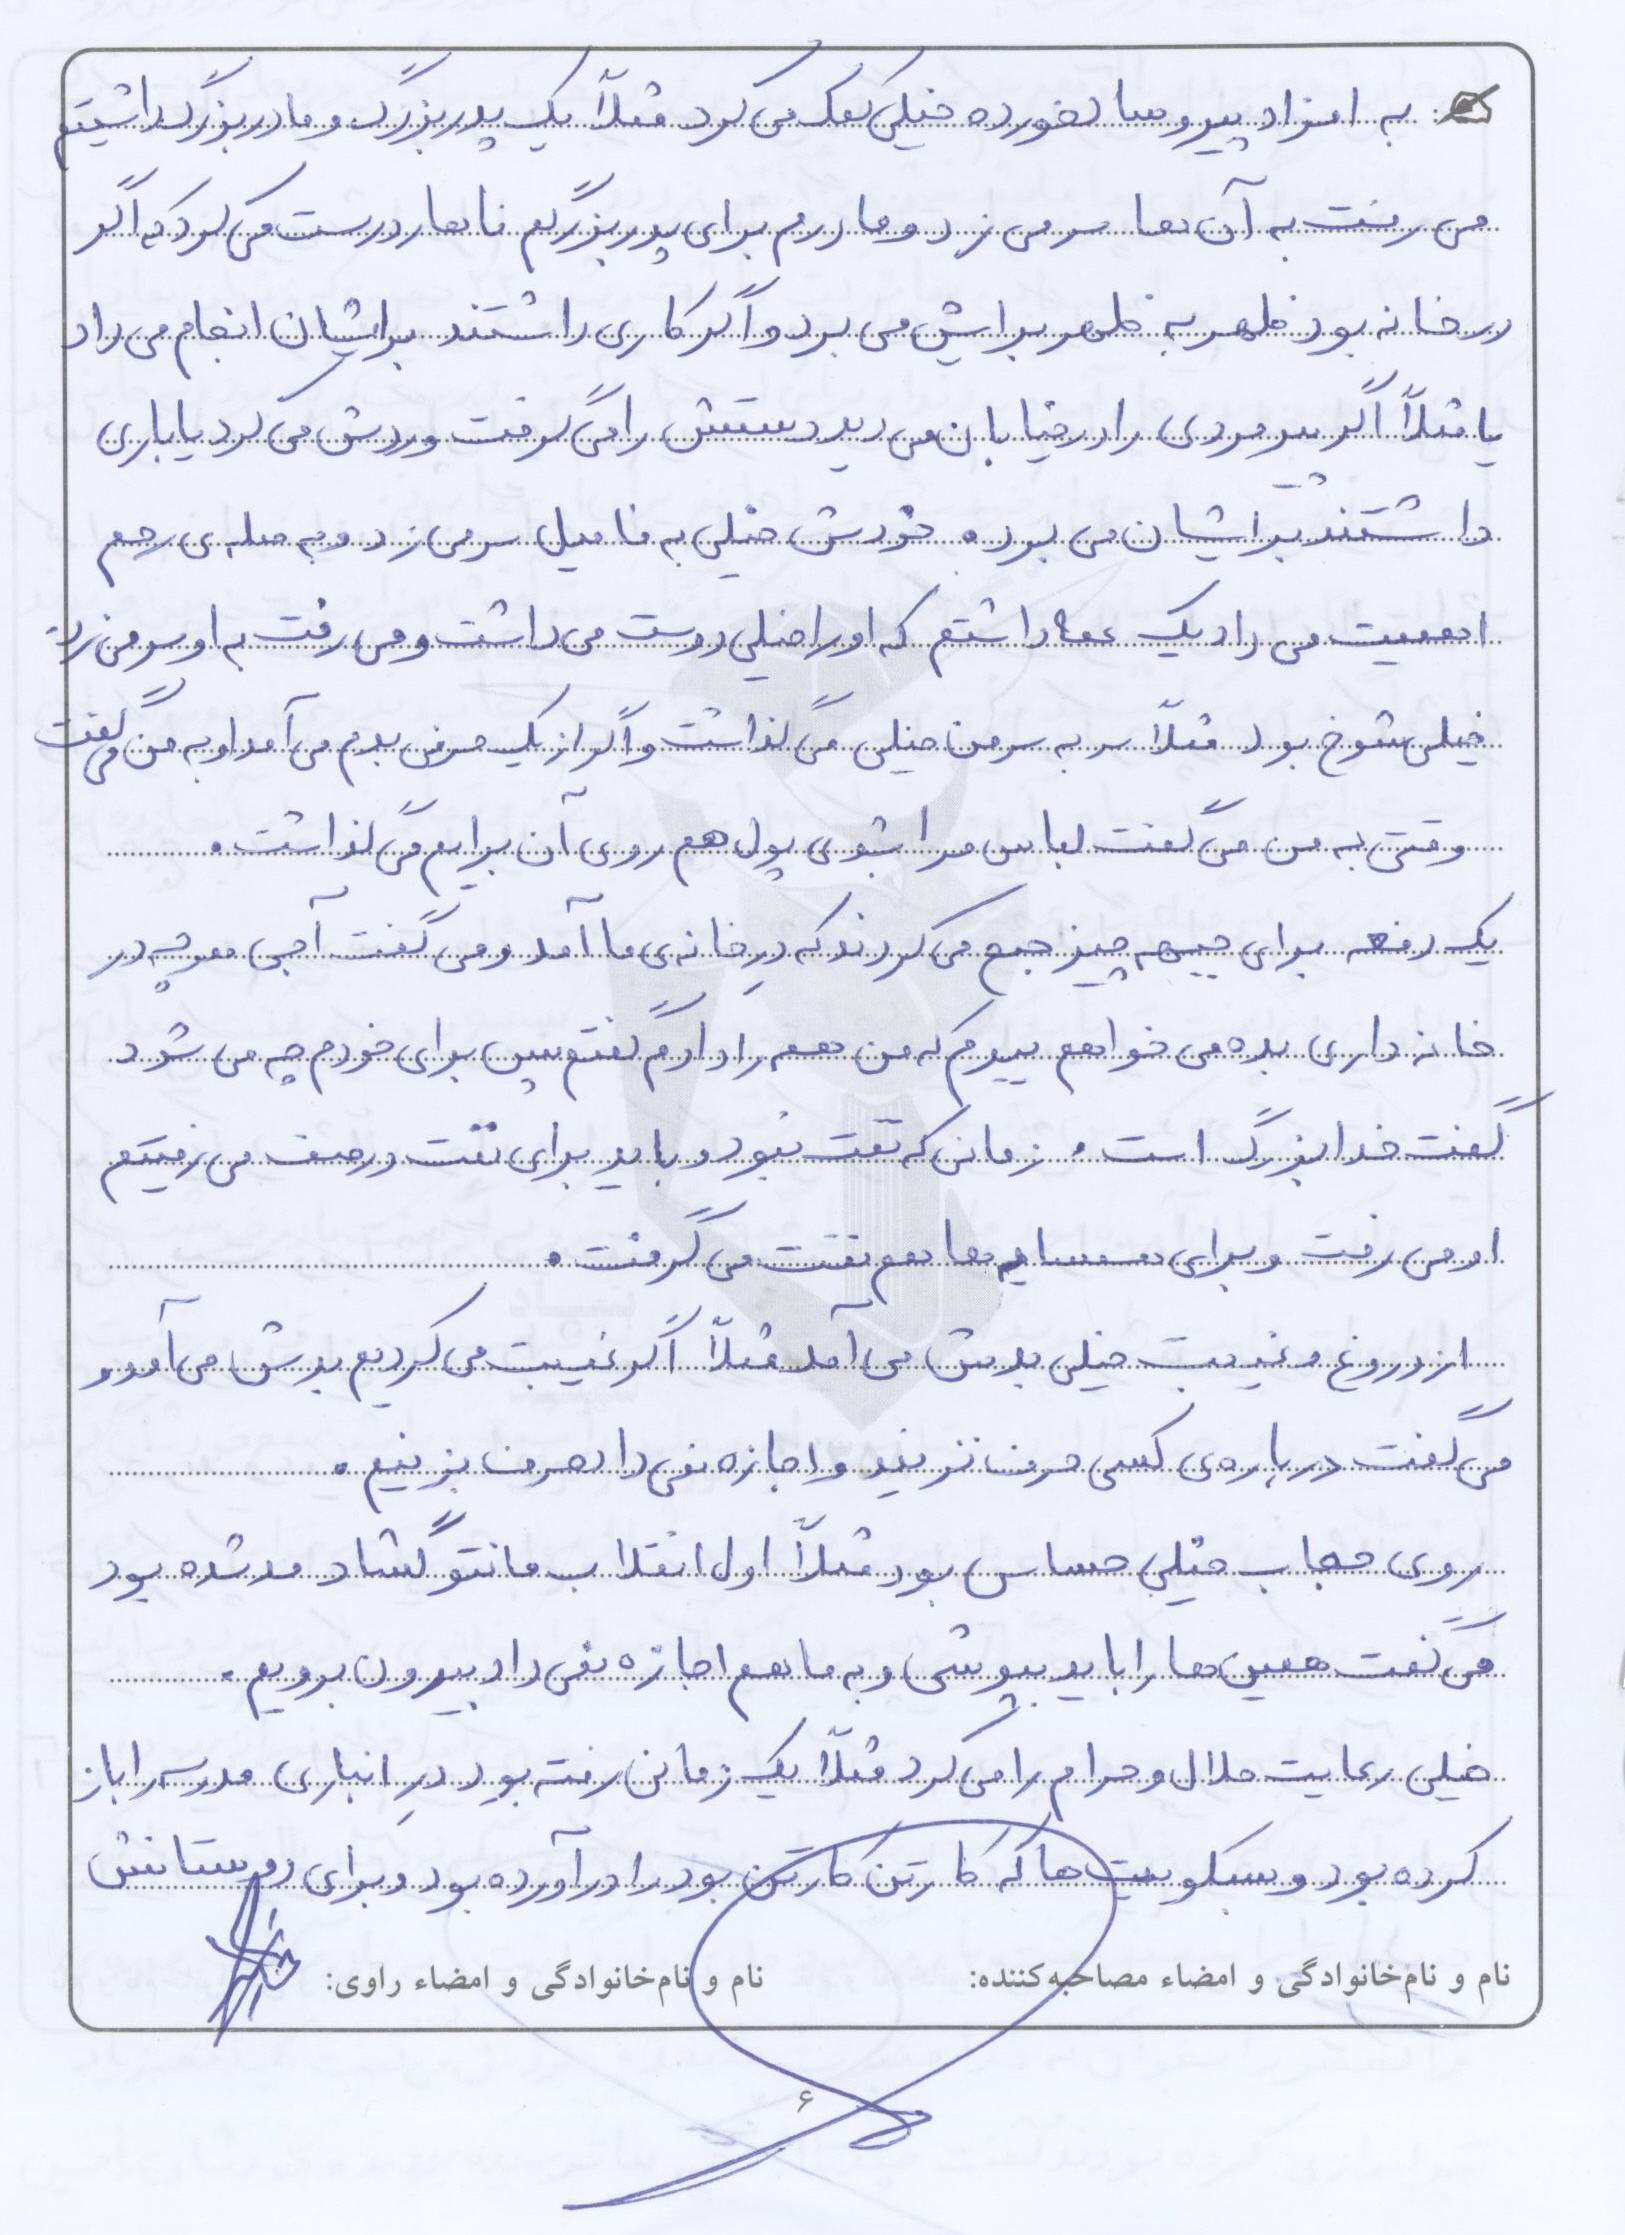 به افراد پیر و سالخورده خیلی کمک می کرد مثلاً یک پدربزرگ و مادربزرگ داشتیم
می رفت به آن ها سر می زد و مادرم برای پدربزرگم ناهار درست می کرد که اگر
در خانه بود ظهر به ظهر برایش می برد و اگر کاری داشتند برایشان انجام می داد
یا مثلاً اگر پیرمردی را در خیابان می دید دستش را می گرفت و ردش می کرد یا باری
داشتند برایشان می برد. خودش خیلی به فامیل سر می زد و به صله ی رحم
اهمیت می داد یک عمه داشتم که او را خیلی دوست می داشت و می رفت به او سر می زد.
خیلی شوخ بود مثلاً سر به سر من خیلی می گذاشت و اگر از یک حرفی بدم می آمد او به من می گفت
وقتی به من می گفت لباس مرا بشوی پول هم روی آن برایم می گذاشت.
یک دفعه برای جبهه چیز جمع می کردند که درِ خانه ی ما آمد و می گفت آجی هرچه در
خانه داری بده می خواهم ببرم که من همه را دادم گفتم پس برای خودم چه می شود
گفت خدا بزرگ است. زمانی که نفت نبود و باید برای نفت در صف می رفتیم
او می رفت و برای همسایه ها هم نفت می گرفت.
از دروغ و غیبت خیلی بدش می آمد مثلاً اگر غیبت می کردیم بدش می آمد و
می گفت درباره ی کسی حرف نزنید و اجازه نمی داد حرف بزنیم.
روی حجاب خیلی حساس بود مثلاً اول انقلاب مانتو گشاد مد شده بود
می گفت همین ها را باید بپوشی و به ما هم اجازه نمی داد بیرون برویم.
خیلی رعایت حلال و حرام را می کرد مثلاً یک زمانی رفته بود درِ انباری مدرسه را باز
کرده بود و بیسکویت ها که کارتن کارتن بود را درآورده بود و برای دوستانش
نام و نام‌خانوادگی و امضاء مصاحبه‌کننده: نام و نام‌خانوادگی و امضاء راوی:
۶